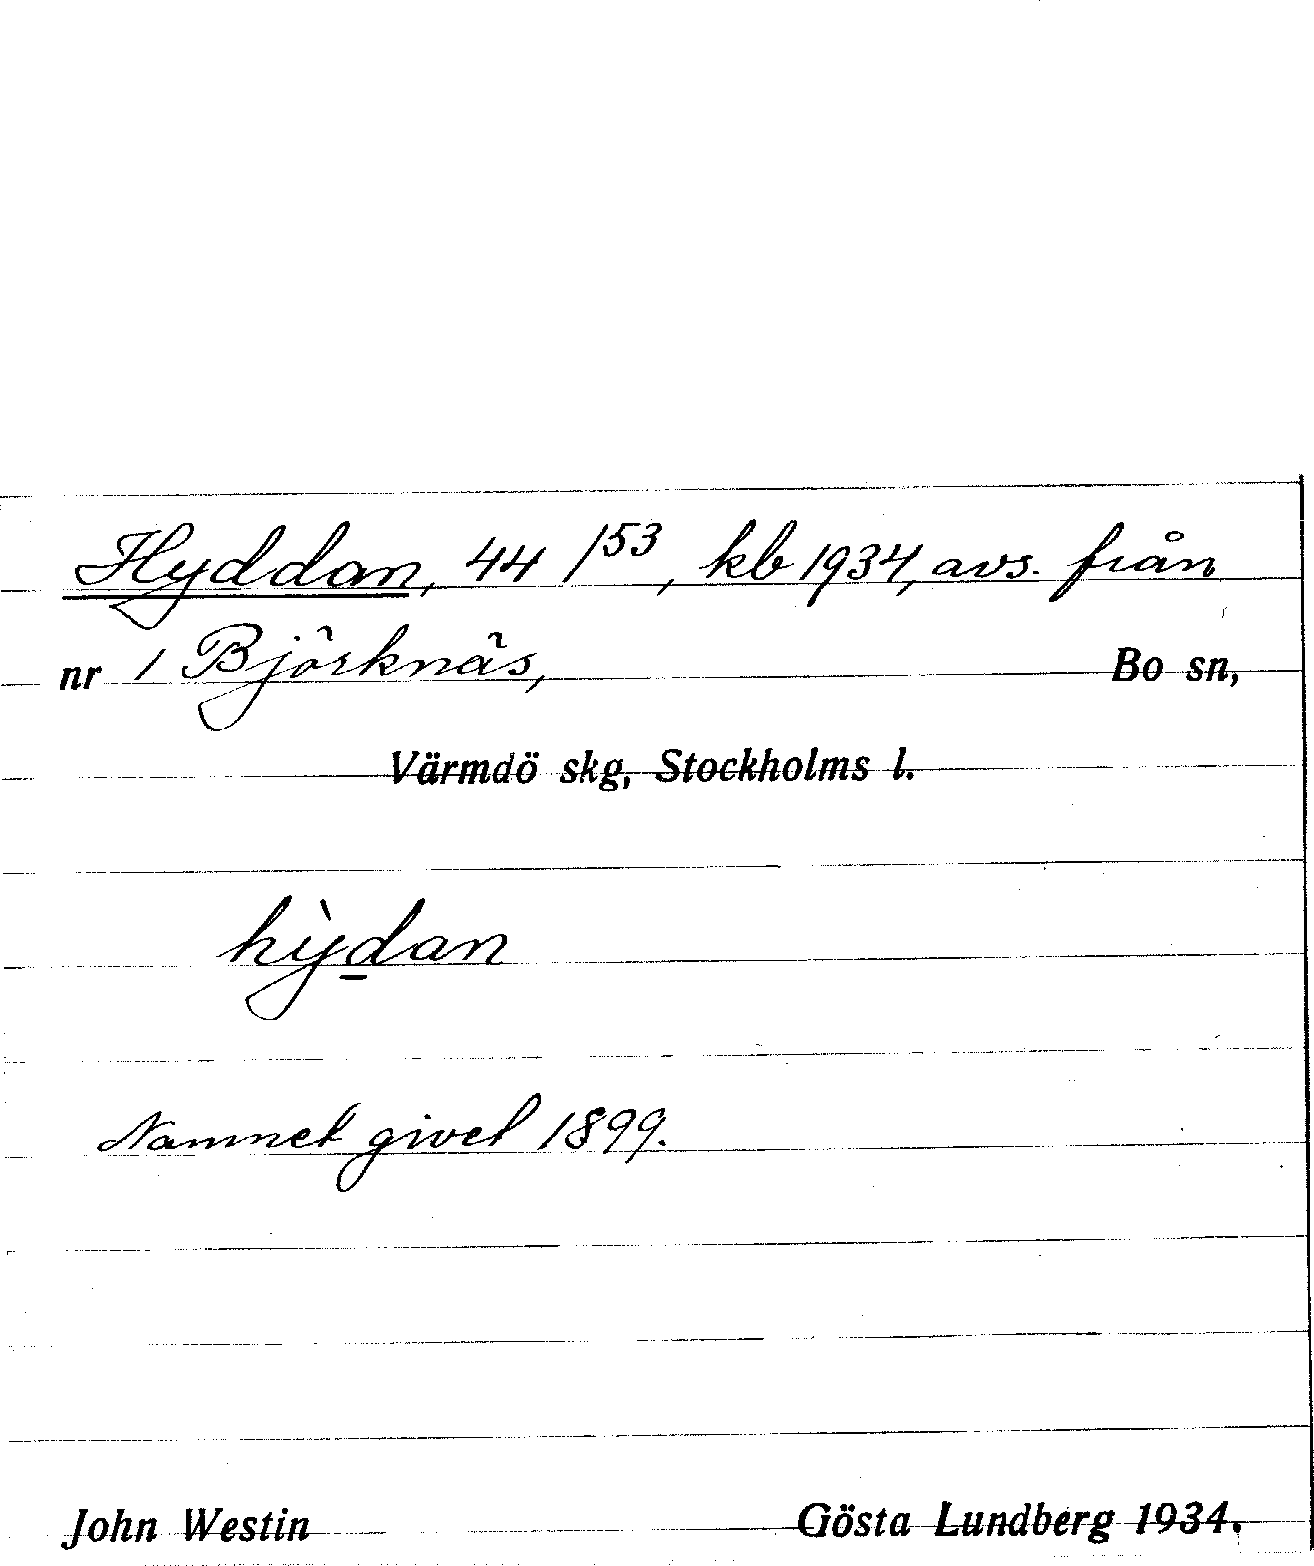 Hyddan, 44 /53, kb 1934, avs. från
nr 1 Björknäs, Bo sn,
Värmdö skg, Stockholms l.
hỳdan
Namnet givet 1899.
John Westin Gösta Lundberg 1934.